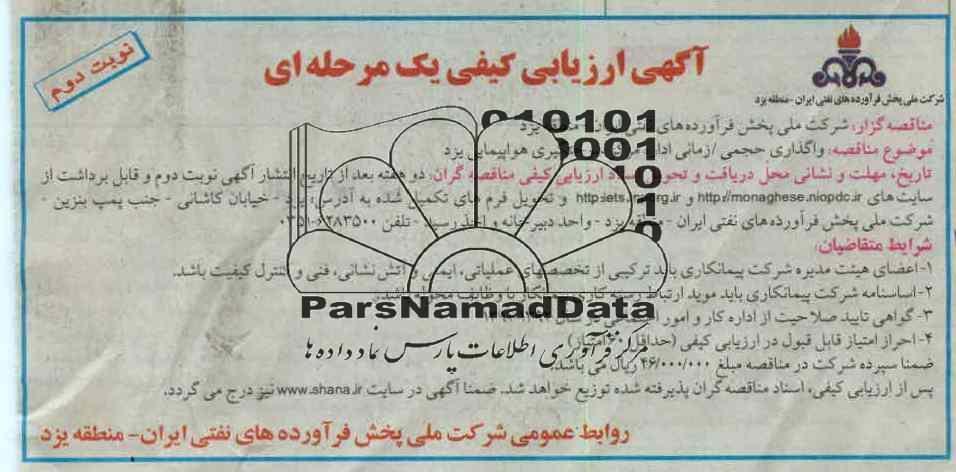 نوبت دوم
آگهی ارزیابی کیفی یک مرحله ای
شرکت ملی پخش فرآورده های نفتی ایران - منطقه یزد
مناقصه گزار: شرکت ملی پخش فرآورده های نفتی ایران - منطقه یزد
موضوع مناقصه: واگذاری حجمی /زمانی هواپیمایی یزد
تاریخ، مهلت و نشانی محل دریافت و تحویل اسناد ارزیابی کیفی مناقصه گران: دو هفته بعد از تاریخ انتشار آگهی نوبت دوم و قابل برداشت از
سایت های http://monaghese.niopdc.ir و و تحویل فرم های تکمیل شده به آدرس: یزد - خیابان کاشانی - جنب پمپ بنزین -
شرکت ملی پخش فرآورده های نفتی ایران - منطقه یزد - واحد دبیرخانه و اخذ رسید - تلفن
شرایط متقاضیان:
۱-اعضای هیئت مدیره شرکت پیمانکاری باید ترکیبی از تخصصهای عملیاتی، ایمنی و آتش نشانی، فنی و کنترل کیفیت باشد.
۲-اساسنامه شرکت پیمانکاری باید موید ارتباط با وظایف
۳- گواهی تایید صلاحیت از اداره کار و امور
۴- احراز امتیاز قابل قبول در ارزیابی کیفی (حداقل ۶۰ امتیاز)
ضمنا سپرده شرکت در مناقصه مبلغ ۴۶/۰۰۰/۰۰۰ ریال می باشد.
پس از ارزیابی کیفی، اسناد مناقصه گران پذیرفته شده توزیع خواهد شد. ضمنا آگهی در سایت www.shana.ir نیز درج می گردد.
روابط عمومی شرکت ملی پخش فرآورده های نفتی ایران- منطقه یزد
ParsNamadData
مرکز فرآوری اطلاعات پارس نماد داده ها